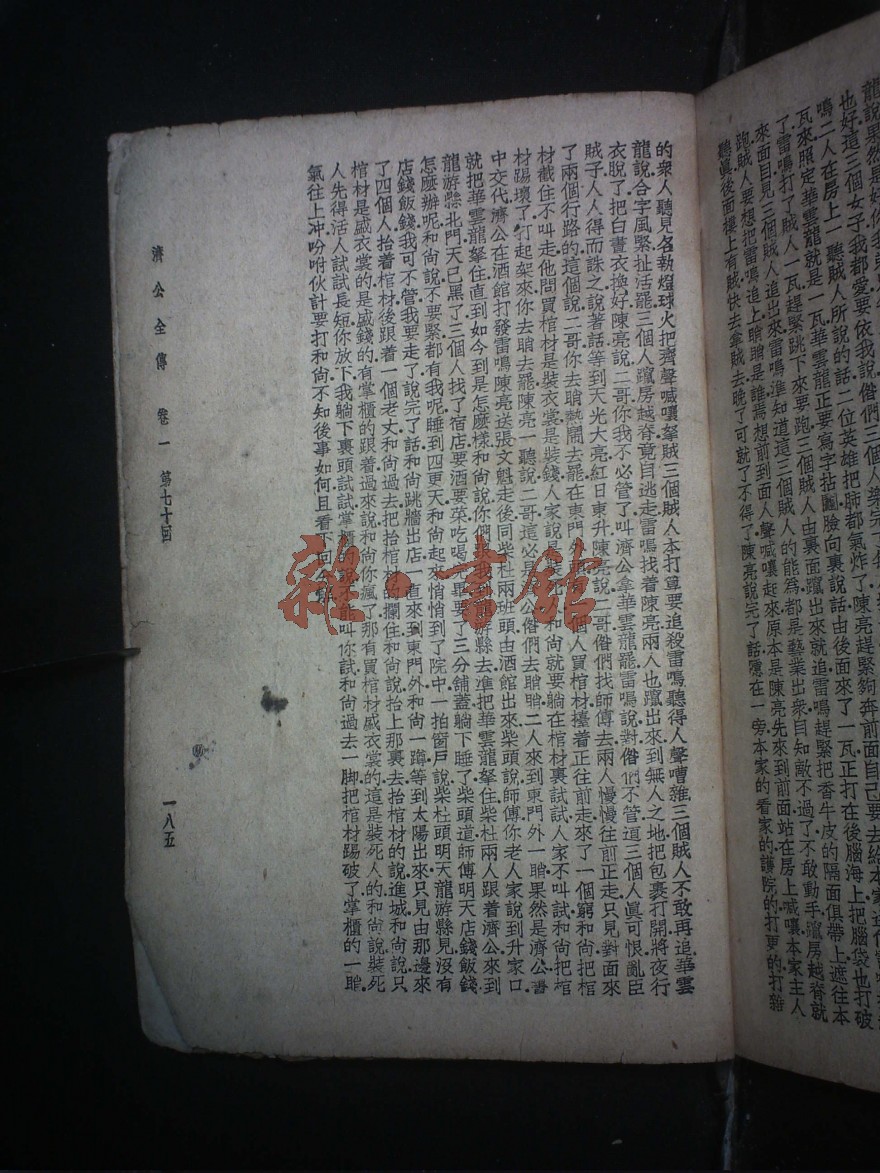 龍說果然是好你我
也好這三個女子我都愛要依我說俏三個人樂完了
鳴二人在房上一聽賊人所說的話二位英雄把肺都氣炸了陳亮趕緊夠奔前面自己要去給本家
瓦來照定華雲龍就是一瓦華雲龍正要寫字拈鬮臉向裏說話由後面來了一瓦正打在後腦海上把腦袋也打破
了雷鳴打了賊人一瓦趕緊跳下來要跑三個賊人由裏面躥出來就追雷鳴趕緊把香牛皮的隔面俱帶上遮住本
來面目見三個賊人追出來雷鳴准知道這三個賊人的能爲都是藝業出衆自知敵不過了不敢動手躥房越脊就
跑賊人要想把雷鳴追上睄睄是誰焉想前到面人聲喊嚷起來原本是陳亮先來到前面站在房上喊嚷本家主人
聽眞後面樓上有賊快去拿賊去晚了可就了不得了陳亮說完了話隱在一旁本家的看家的護院的打更的打雜
的衆人聽見各執燈球火把齊聲喊嚷拏賊三個賊人本打算要追殺雷鳴聽得人聲嘈雜三個賊人不敢再追華雲
龍說合字風緊扯活罷三個人躥房越脊竟自逃走雷鳴找着陳亮兩人也躥出來到無人之地把包裹打開將夜行
衣脫了把白晝衣換好陳亮說二哥你我不必管了叫濟公拿華雲龍罷雷鳴說對俏們不管這三個人眞可恨亂臣
賊子人人得而誅之說著話等到天光大亮紅日東升陳亮說二哥俏們找師傅去兩人慢慢往前正走只見對面來
了兩個行路的這個說二哥你去睄熱鬧去罷在東門外個人買棺材擡着正往前走來了一個窮和尙把棺
材截住不叫走他問買棺材是裝衣裳是裝錢人家說是裝和尙就要躺在棺材裏試試人家不叫試和尙把棺
材踢壞了打起架來你去睄去罷陳亮一聽說二哥這必是公俏們去睄睄二人來到東門外一睄果然是濟公書
中交代濟公在酒館打發雷鳴陳亮送張文魁走後同柴杜兩班頭由酒館出來柴頭說師傅你老人家說到升家口
就把華雲龍拏住直到如今到是怎麼樣和尙說你們跟我到龍游縣去準把華雲龍拏住柴杜兩人跟着濟公來到
龍游縣北門天已黑了三個人找了宿店要酒要菜吃喝完畢要了三分舖蓋躺下睡了柴頭道師傅明天店錢飯錢
怎麼辦呢和尙說不要緊都有我呢睡到四更天和尙起來悄悄到了院中一拍窗戶說柴杜頭明天龍游縣見沒有
店錢飯錢我可不管我要走了說完了話和尙跳牆出店一直來到東門外和尙一蹲等到太陽出來只見由那邊來
了四個人抬着棺材後跟着一個老丈和尙過去把抬棺材的攔住和尙說抬上那裏去抬棺材的說進城和尙說只
棺材是盛衣裳的是盛錢的有掌櫃的跟着過來說和尙你瘋了那有買棺材盛衣裳的這是裝死人的和尙說裝死
人先得活人試試長短你放下我躺下裏頭試試掌櫃的說不能叫你試和尙過去一脚把棺材踢破了掌櫃的一睄
氣往上冲吩咐伙計要打和尙不知後事如何且看下回分解
濟公全傳 卷一 第七十回 一八五
雜·書館